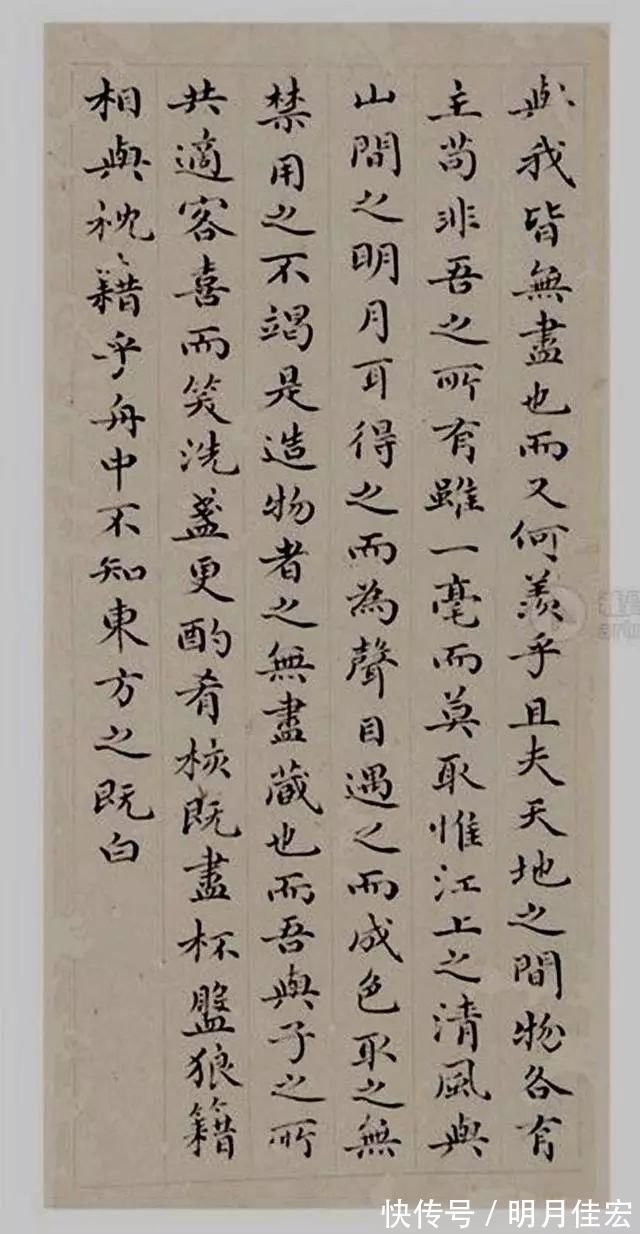 與我皆無盡也而又何羨乎且夫天地之間物各有
主苟非吾之所有雖一毫而莫取惟江上之清風與
山間之明月耳得之而為聲目遇之而成色取之無
禁用之不竭是造物者之無盡藏也而吾與子之所
共適客喜而笑洗盞更酌肴核既盡杯盤狼籍
相與枕、籍乎舟中不知東方之既白
快传号 / 明月佳宏